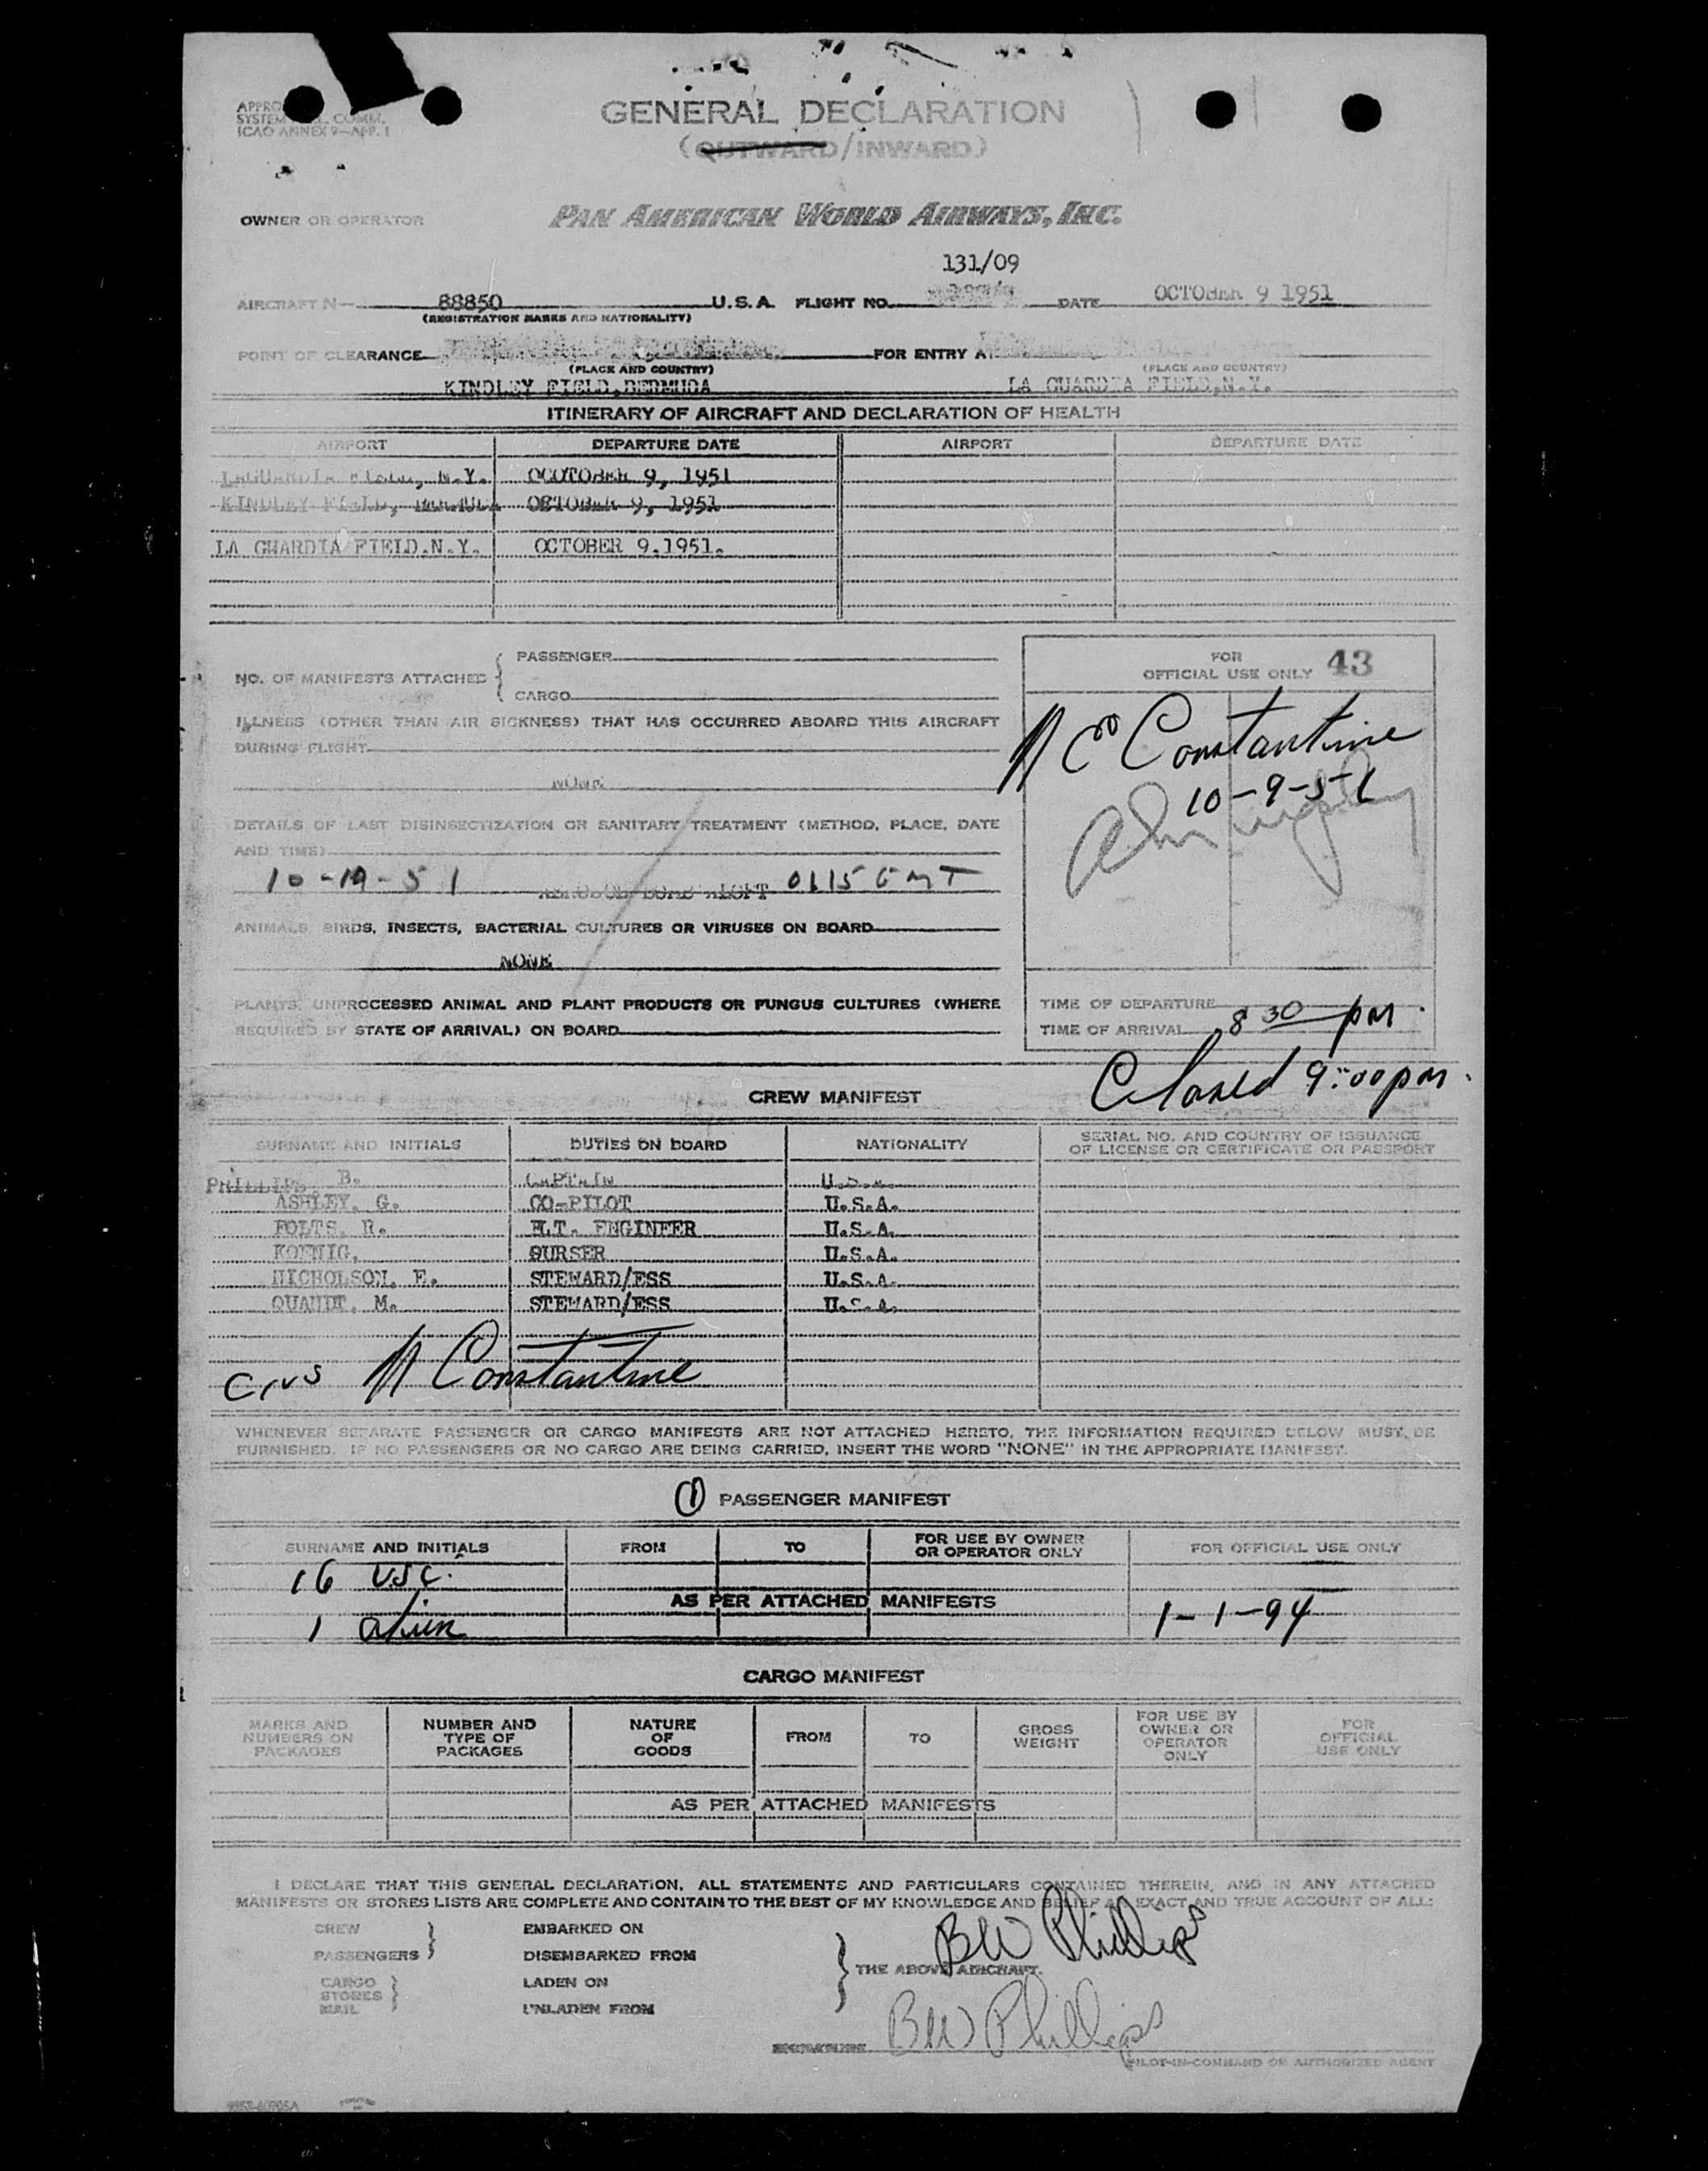 GENERAL DECLARATION
(OUTWARD/INWARD)
APPRO
SYSTEM COMM.
ICAO ANNEX 9—APP. 1
OWNER OR OPERATOR PAN AMERICAN WORLD AIRWAYS, INC.
131/09
AIRCRAFT N— 88850 U.S.A. FLIGHT NO. DATE OCTOBER 9 1951
(REGISTRATION MARKS AND NATIONALITY)
POINT OF CLEARANCE FOR ENTRY AT
(PLACE AND COUNTRY) (PLACE AND COUNTRY)
KINDLEY FIELD,BERMUDA LA GUARDIA FIELD,N.Y.
ITINERARY OF AIRCRAFT AND DECLARATION OF HEALTH
AIRPORT DEPARTURE DATE AIRPORT DEPARTURE DATE
LAGUARDIA FIELD, N.Y. OCOTOBER 9, 1951
KINDLEY FIELD, BERMUDA OCTOBER 9, 1951
LA GUARDIA FIELD.N.Y. OCTOBER 9.1951.
NO. OF MANIFESTS ATTACHED { PASSENGER
CARGO
ILLNESS (OTHER THAN AIR SICKNESS) THAT HAS OCCURRED ABOARD THIS AIRCRAFT
DURING FLIGHT
NONE
DETAILS OF LAST DISINSECTIZATION OR SANITARY TREATMENT (METHOD, PLACE, DATE
AND TIME)
10-19-51 AEROSOL BOMB ALOFT 0115 GMT
ANIMALS, BIRDS, INSECTS, BACTERIAL CULTURES OR VIRUSES ON BOARD
NONE
PLANTS, UNPROCESSED ANIMAL AND PLANT PRODUCTS OR FUNGUS CULTURES (WHERE
REQUIRED BY STATE OF ARRIVAL) ON BOARD
FOR
OFFICIAL USE ONLY 43
Constantine
10-9-51
TIME OF DEPARTURE
TIME OF ARRIVAL 8 30 pm.
Closed 9:00 pm.
CREW MANIFEST
SURNAME AND INITIALS DUTIES ON BOARD NATIONALITY SERIAL NO. AND COUNTRY OF ISSUANCE
OF LICENSE OR CERTIFICATE OR PASSPORT
PHILLIPS, B. CAPTAIN U.S.A.
ASHLEY, G. CO-PILOT U.S.A.
FOLTS, R. FLT. ENGINEER U.S.A.
KOENIG, PURSER U.S.A.
NICHOLSON, E. STEWARD/ESS U.S.A.
QUANDT, M. STEWARD/ESS U.S.A.
N Constantine
WHENEVER SEPARATE PASSENGER OR CARGO MANIFESTS ARE NOT ATTACHED HERETO, THE INFORMATION REQUIRED BELOW MUST BE
FURNISHED. IF NO PASSENGERS OR NO CARGO ARE BEING CARRIED, INSERT THE WORD "NONE" IN THE APPROPRIATE MANIFEST.
(1) PASSENGER MANIFEST
SURNAME AND INITIALS FROM TO FOR USE BY OWNER OR OPERATOR ONLY FOR OFFICIAL USE ONLY
16 USC.
AS PER ATTACHED MANIFESTS
1 alien 1-1-94
CARGO MANIFEST
MARKS AND NUMBERS ON PACKAGES NUMBER AND TYPE OF PACKAGES NATURE OF GOODS FROM TO GROSS WEIGHT FOR USE BY OWNER OR OPERATOR ONLY FOR OFFICIAL USE ONLY
AS PER ATTACHED MANIFESTS
I DECLARE THAT THIS GENERAL DECLARATION, ALL STATEMENTS AND PARTICULARS CONTAINED THEREIN, AND IN ANY ATTACHED
MANIFESTS OR STORES LISTS ARE COMPLETE AND CONTAIN TO THE BEST OF MY KNOWLEDGE AND BELIEF AN EXACT AND TRUE ACCOUNT OF ALL:
CREW EMBARKED ON
PASSENGERS DISEMBARKED FROM
BW Phillips
THE ABOVE AIRCRAFT.
CARGO LADEN ON
STORES
MAIL UNLADEN FROM
BW Phillips
PILOT-IN-COMMAND OR AUTHORIZED AGENT